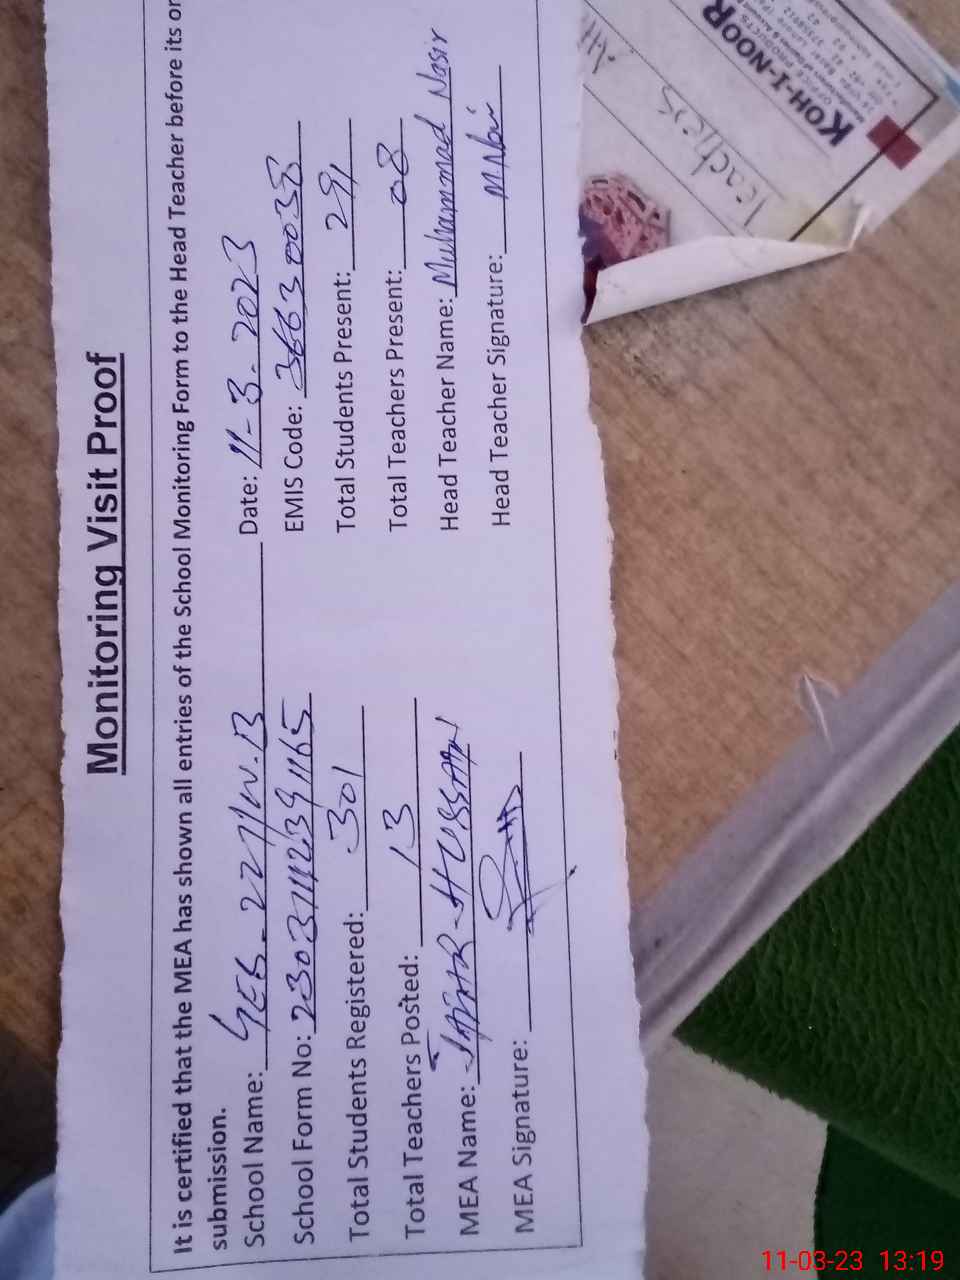 Monitoring Visit Proof
It is certified that the MEA has shown all entries of the School Monitoring Form to the Head Teacher before its or
submission.
School Name: GES-227/W.B Date: 11-3-2023
School Form No: EMIS Code: 36630038
Total Students Registered: 301 Total Students Present: 291
Total Teachers Posted: 13 Total Teachers Present: 08
MEA Name: HUSSAIN Head Teacher Name: Muhammad Nasir
MEA Signature: Head Teacher Signature:
KOH-I-NOOR
Teachers
11-03-23 13:19